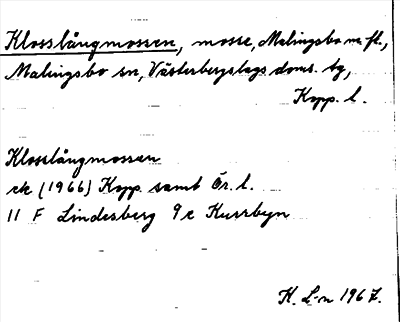 Klosslångmossen, mosse, Malingsbo m. fl.,
Malingsbo sn, Västerbergslags doms. tg,
Kopp. l.
Klosslångmossen
ek (1966) Kopp. samt Ör. l.
11 F Lindesberg 9 c Kursbyn
K. L-n 1967.